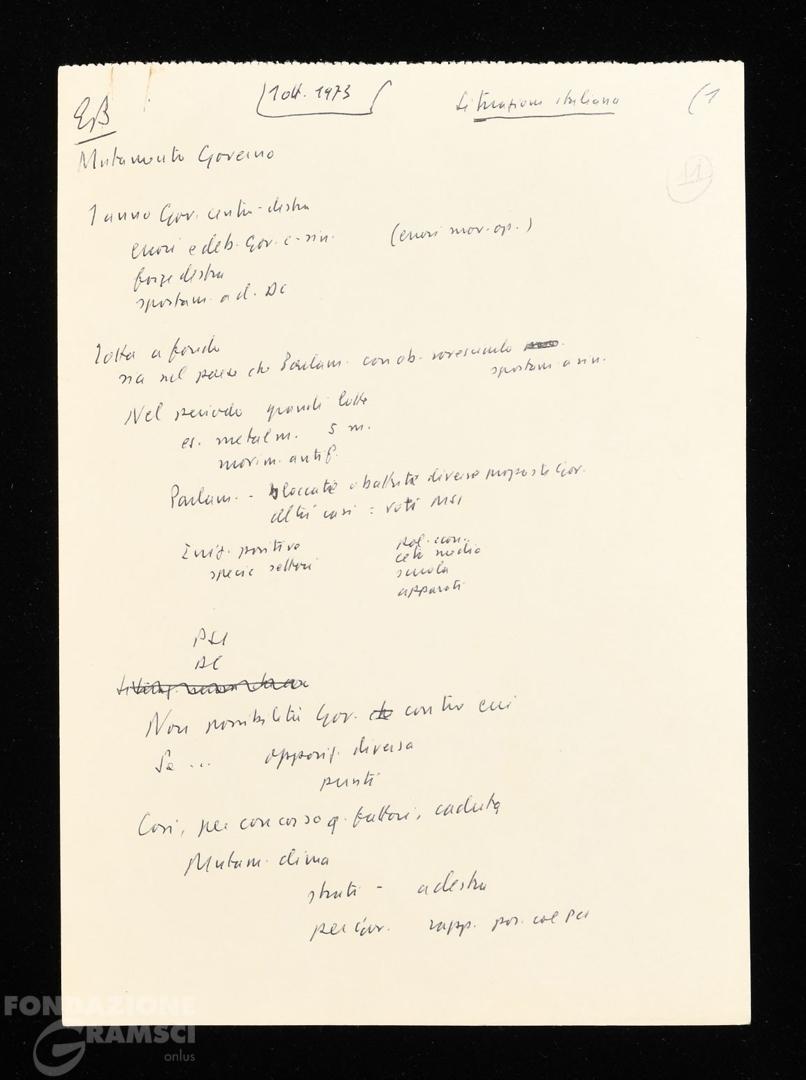 EB
1 ott. 1973
Situazione italiana
(1
11
Mutamento Governo
1 anno Gov. centro-destra
errori e deb. Gov. c-sin. (errori mov. op.)
forze destra
spostam. a d. DC
Lotta a fondo
sia nel paese che Parlam. con ob. rovesciarlo
spostam a sin.
Nel periodo grandi lotte
es. metalm. 5 m.
movim. antif.
Parlam. - bloccate o battute diverse proposte Gov.
altri casi = voti MSI
Iniz. positive
specie settori
pol. econ.
ceto medio
scuola
apparati
PSI
DC
Non possibilità Gov. contro cui
Se ... opposiz. diversa
punti
Così, per concorso q. fattori, caduta
Mutam. clima
strati - a destra
per Gov. rapp. pos. col PCI
FONDAZIONE
GRAMSCI
onlus